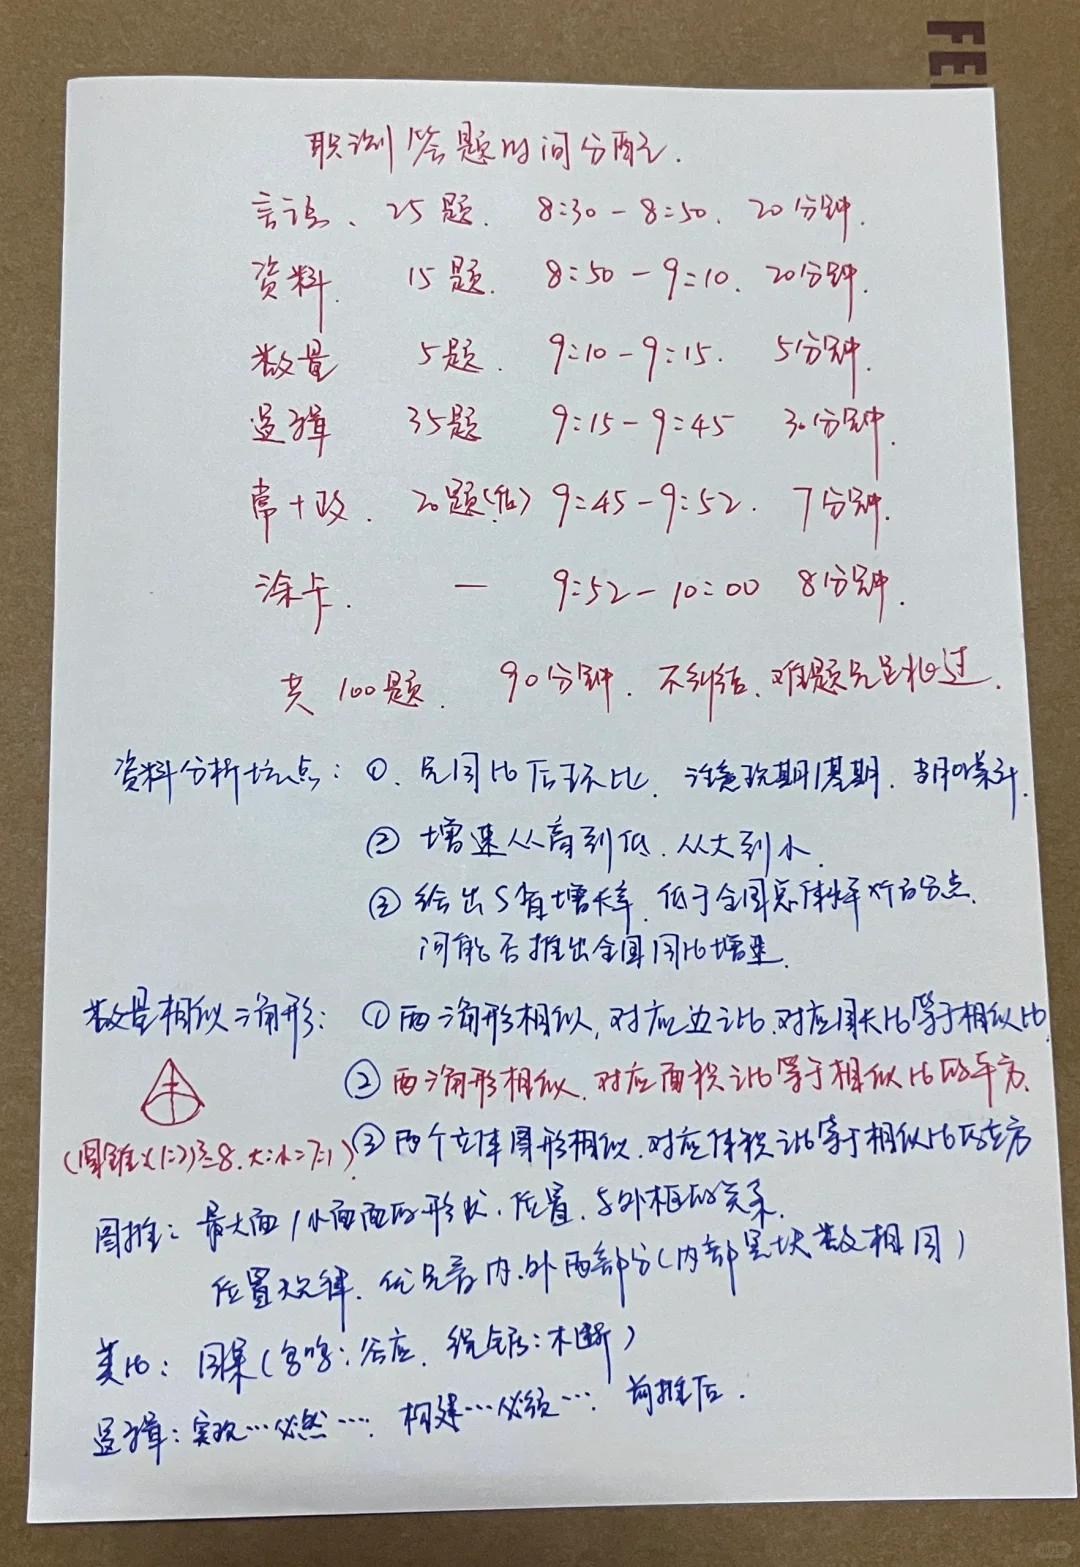 FE
职测答题时间分配.
言语、25题. 8:30-8:50. 20分钟.
资料. 15题. 8:50-9:10. 20分钟.
数量 5题. 9:10-9:15. 5分钟.
逻辑 35题 9:15-9:45 30分钟.
常+政. 20题(估) 9:45-9:52. 7分钟.
涂卡. — 9:52-10:00 8分钟.
共100题. 90分钟. 不纠结、难题先跳过.
资料分析坑点: ①. 先同比后环比. 注意现期/基期. 当月or累计.
② 增速从高到低. 从大到小.
③ 给出S省增长率. 低于全国总体水平x个百分点.
问能否推出全国同比增速.
数量相似三角形: ①两三角形相似, 对应边之比、对应周长比等于相似比.
②两三角形相似. 对应面积之比等于相似比的平方.
(圆锥 大:小=7:1)
③两个立体图形相似. 对应体积之比等于相似比的立方
图推: 最大面/小面面的形状、位置、与外框的关系.
位置规律. 优先看内、外两部分(内部黑块数相同)
类比: 因果(鸟鸣:谷应. 绳锯:木断)
逻辑: 实现…必然…. 构建…必须…. 前推后.